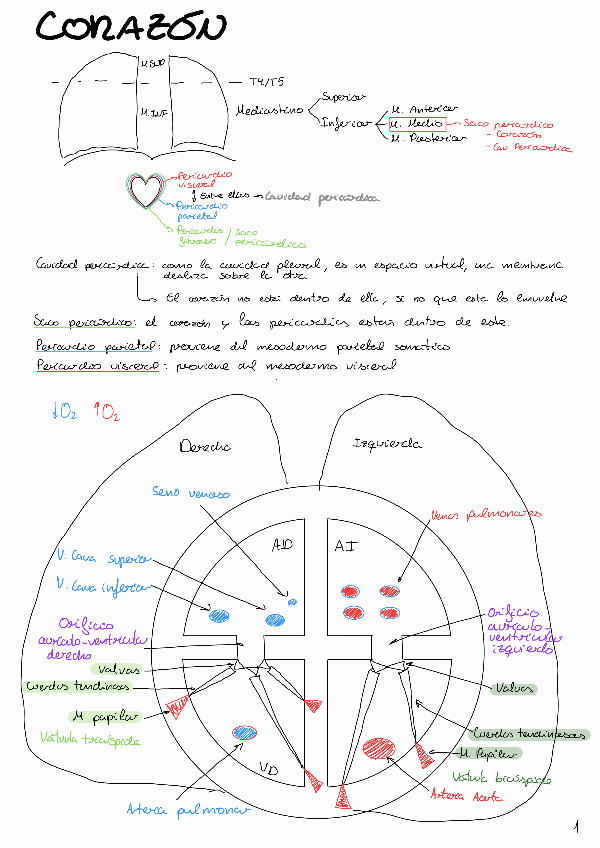 CORAZÓN
M. SUP
T4/T5
M. INF
Mediastino
Superior
Inferior
M. Anterior
M. Medio
M. Posterior
Saco pericárdico
- Corazón
- Cav Pericárdica
Pericardio visceral
Entre ellos → Cavidad pericardica
Pericardio parietal
Pericardio fibroso / Saco pericardico
Cavidad pericárdica: como la cavidad pleural, es un espacio virtual, una membrana
desliza sobre la otra
El corazón no está dentro de ella, si no que esta lo envuelve
Saco pericárdico: el corazón y las pericardios están dentro de este.
Pericardio parietal: proviene del mesodermo parietal somático
Pericardio visceral: proviene del mesodermo visceral
↓O2 ↑O2
Derecha
Izquierda
Seno venoso
Venas pulmonares
AD
AI
V. Cava superior
V. Cava inferior
Orificio
aurículo-ventricular
derecho
Orificio
aurículo-
ventricular
izquierdo
Valvas
Cuerdas tendinosas
M papilar
Válvula tricúspide
Valvas
Cuerdas tendinosas
M. Papilar
Válvula bicúspide
VD
Arteria Aorta
Arteria pulmonar
1